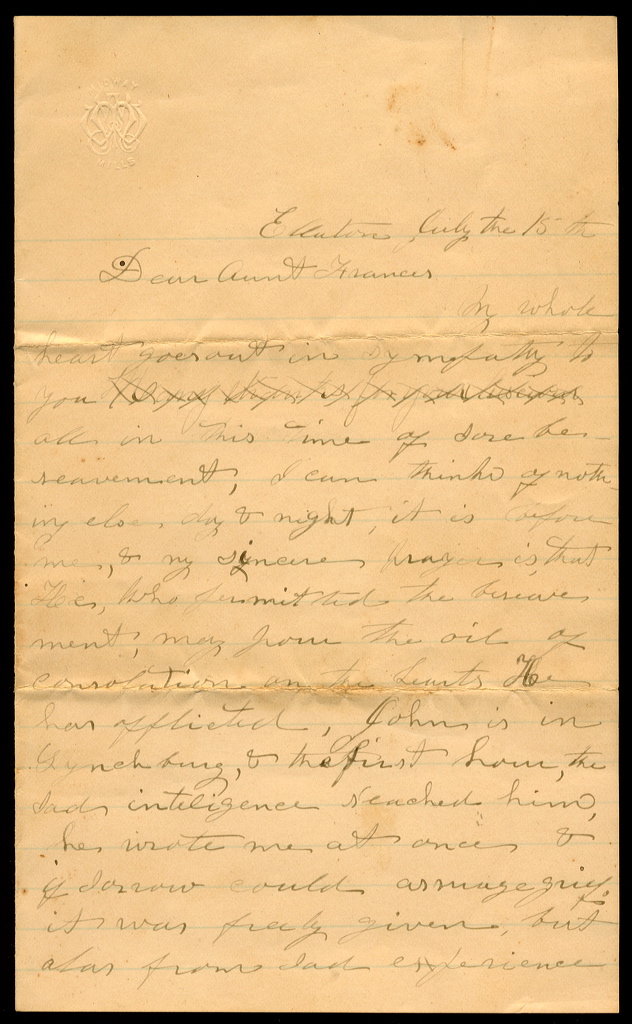 MIDWAY
MILLS
July the 15th
Dear Aunt Frances
My whole
heart goes out in sympathy to
you
all in this time of sore be-
reavement, I can think of noth-
ing else, day & night, it is before
me, & my sincere prayer is, that
He, Who permitted the bereave
ment, may pour the oil of
consolation on the hearts He
has afflicted, John is in
Lynchburg, & the first hour, the
sad inteligence reached him,
he wrote me at once &
if sorrow could assuage grief.
it was freely given, but
alas from sad experience